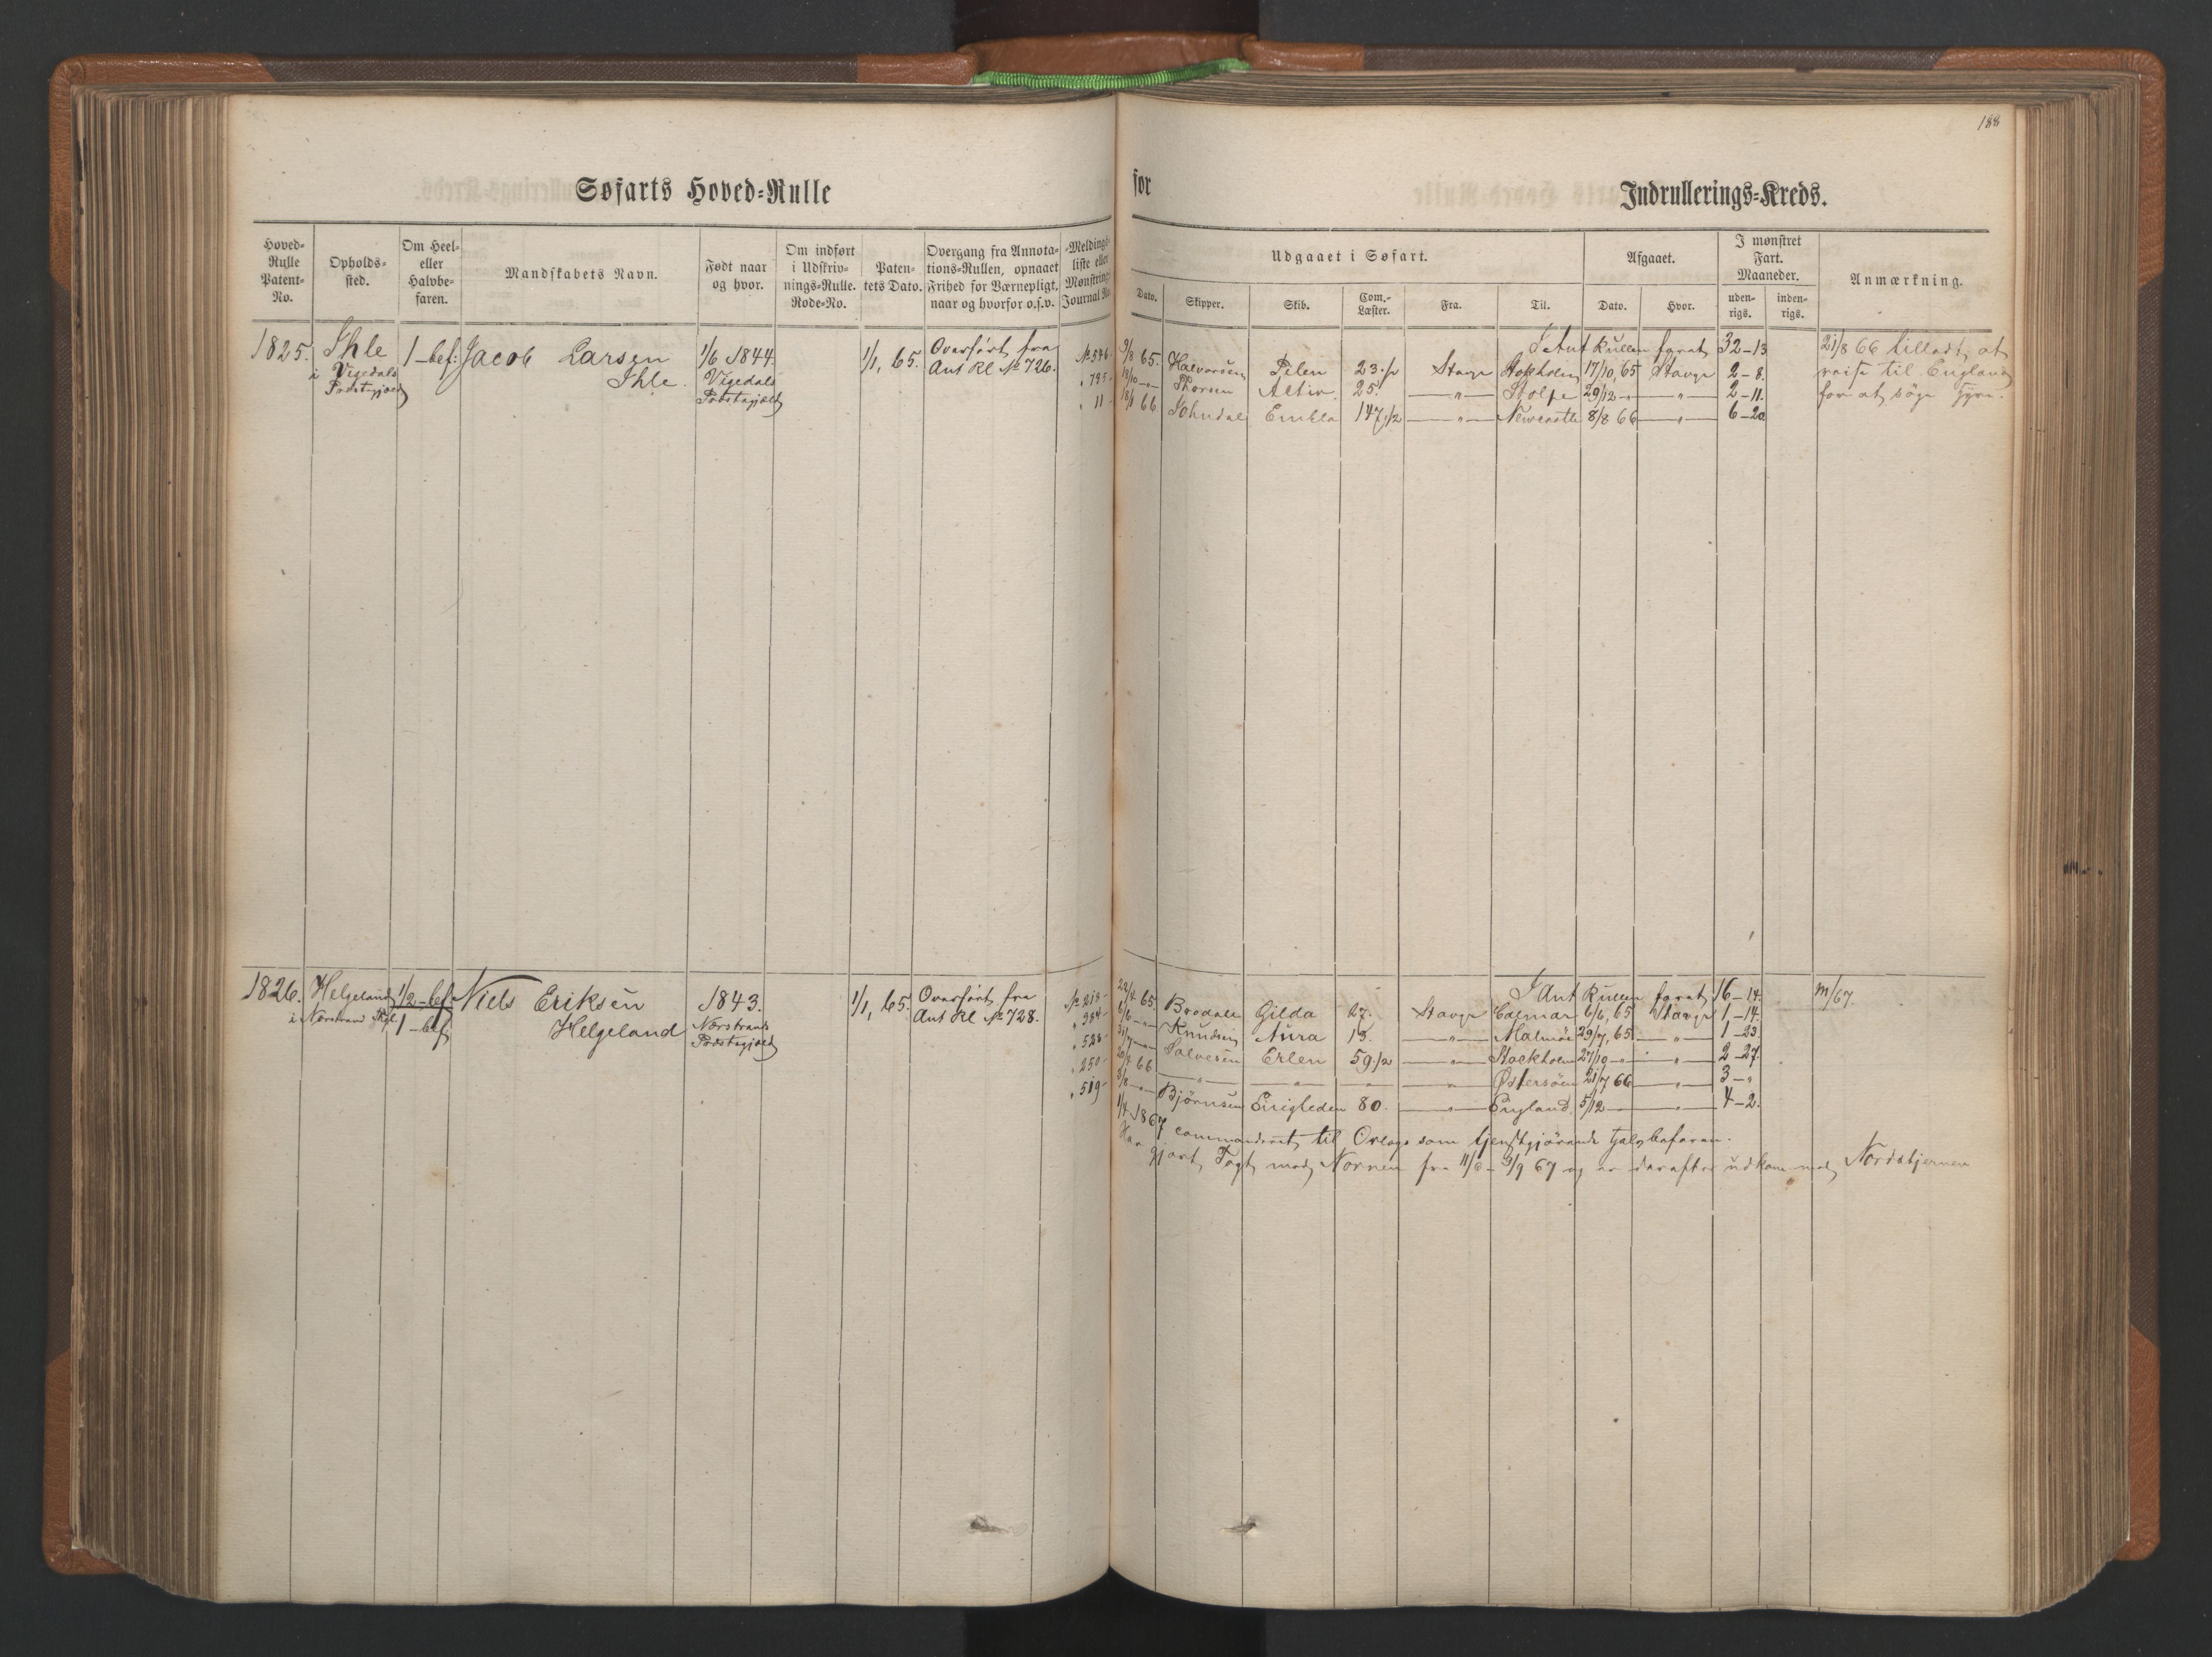 188
Søfarts Hoved-Rulle for Indrullerings-Kreds.
Hoved-Rulle Patent-No.
Opholds-sted.
Om Heel- eller Halvbe-faren.
Mandskabets Navn.
Født naar og hvor.
Om indført i Udskriv-nings-Rulle. Rode-No.
Paten-tets Dato.
Overgang fra Annota-tions-Rullen, opnaaet Frihed for Værnepligt, naar og hvorfor o.s.v.
Meldings-liste eller Mønstrings Journal No.
Udgaaet i Søfart.
Dato.
Skipper.
Skib.
Com.-Læster.
Fra.
Til.
Afgaaet.
Dato.
Hvor.
I mønstret Fart. Maaneder.
uden-rigs.
inden-rigs.
Anmærkning.
1825. Ihle 1-bef: Jacob Larsen 1/6 1844. 1/1, 65. Overført fra
i Vigedals Ihle. Vigedals Ant Rl No 726.
Præstegjeld Præstegjeld
I Ant Rullen forat 32-13
No 546 9/8 65. Halvorsen Pelen 23 1/2 Stavgr Stokholm 17/10, 65 Stavgr 2-8.
" 795 Thorsen Aktiv 25. " Stolpe 29/12 " " 2-11.
" 11 18/1 66. Johndal Embla 147 1/2 " Newcastle 8/8 66 " 6-20
21/8 66 tilladt at
reise til England
for at søge Hyre.
1826. Helgeland 1/2-bef. Niels Eriksen 1843. 1/1, 65. Overført fra
i Nærstrand Pgl. 1-bef Helgeland Nærstrands Ant Rl No 728.
Præstegjeld
I Ant Rullen forat 16-14. m/67.
No 218 22/4 65. Brodale Gilda 27. Stavgr Calmar 6/6, 65 Stavgr 1-14.
" 384 6/6 " Knudsen Aura 13. " Malmöe 29/7, 65 " 1-23.
" 528 31/7 " Salvesen Erlen 59 1/2 " Stockholm 27/10 " " 2-27.
" 250 66 " " " " Østersöen 21/7 66 " 3-"
" 519 3/8 " Bjørnsen Enigheden 80. " England 5/12 " " 4-2.
1/4 1867 commanderet til Orlogs som tjenstgjörende halvbefaren.
Har gjort Togt med Nornen fra 11/6 - 9/9 67 og er derefter udkom med Nordstjernen